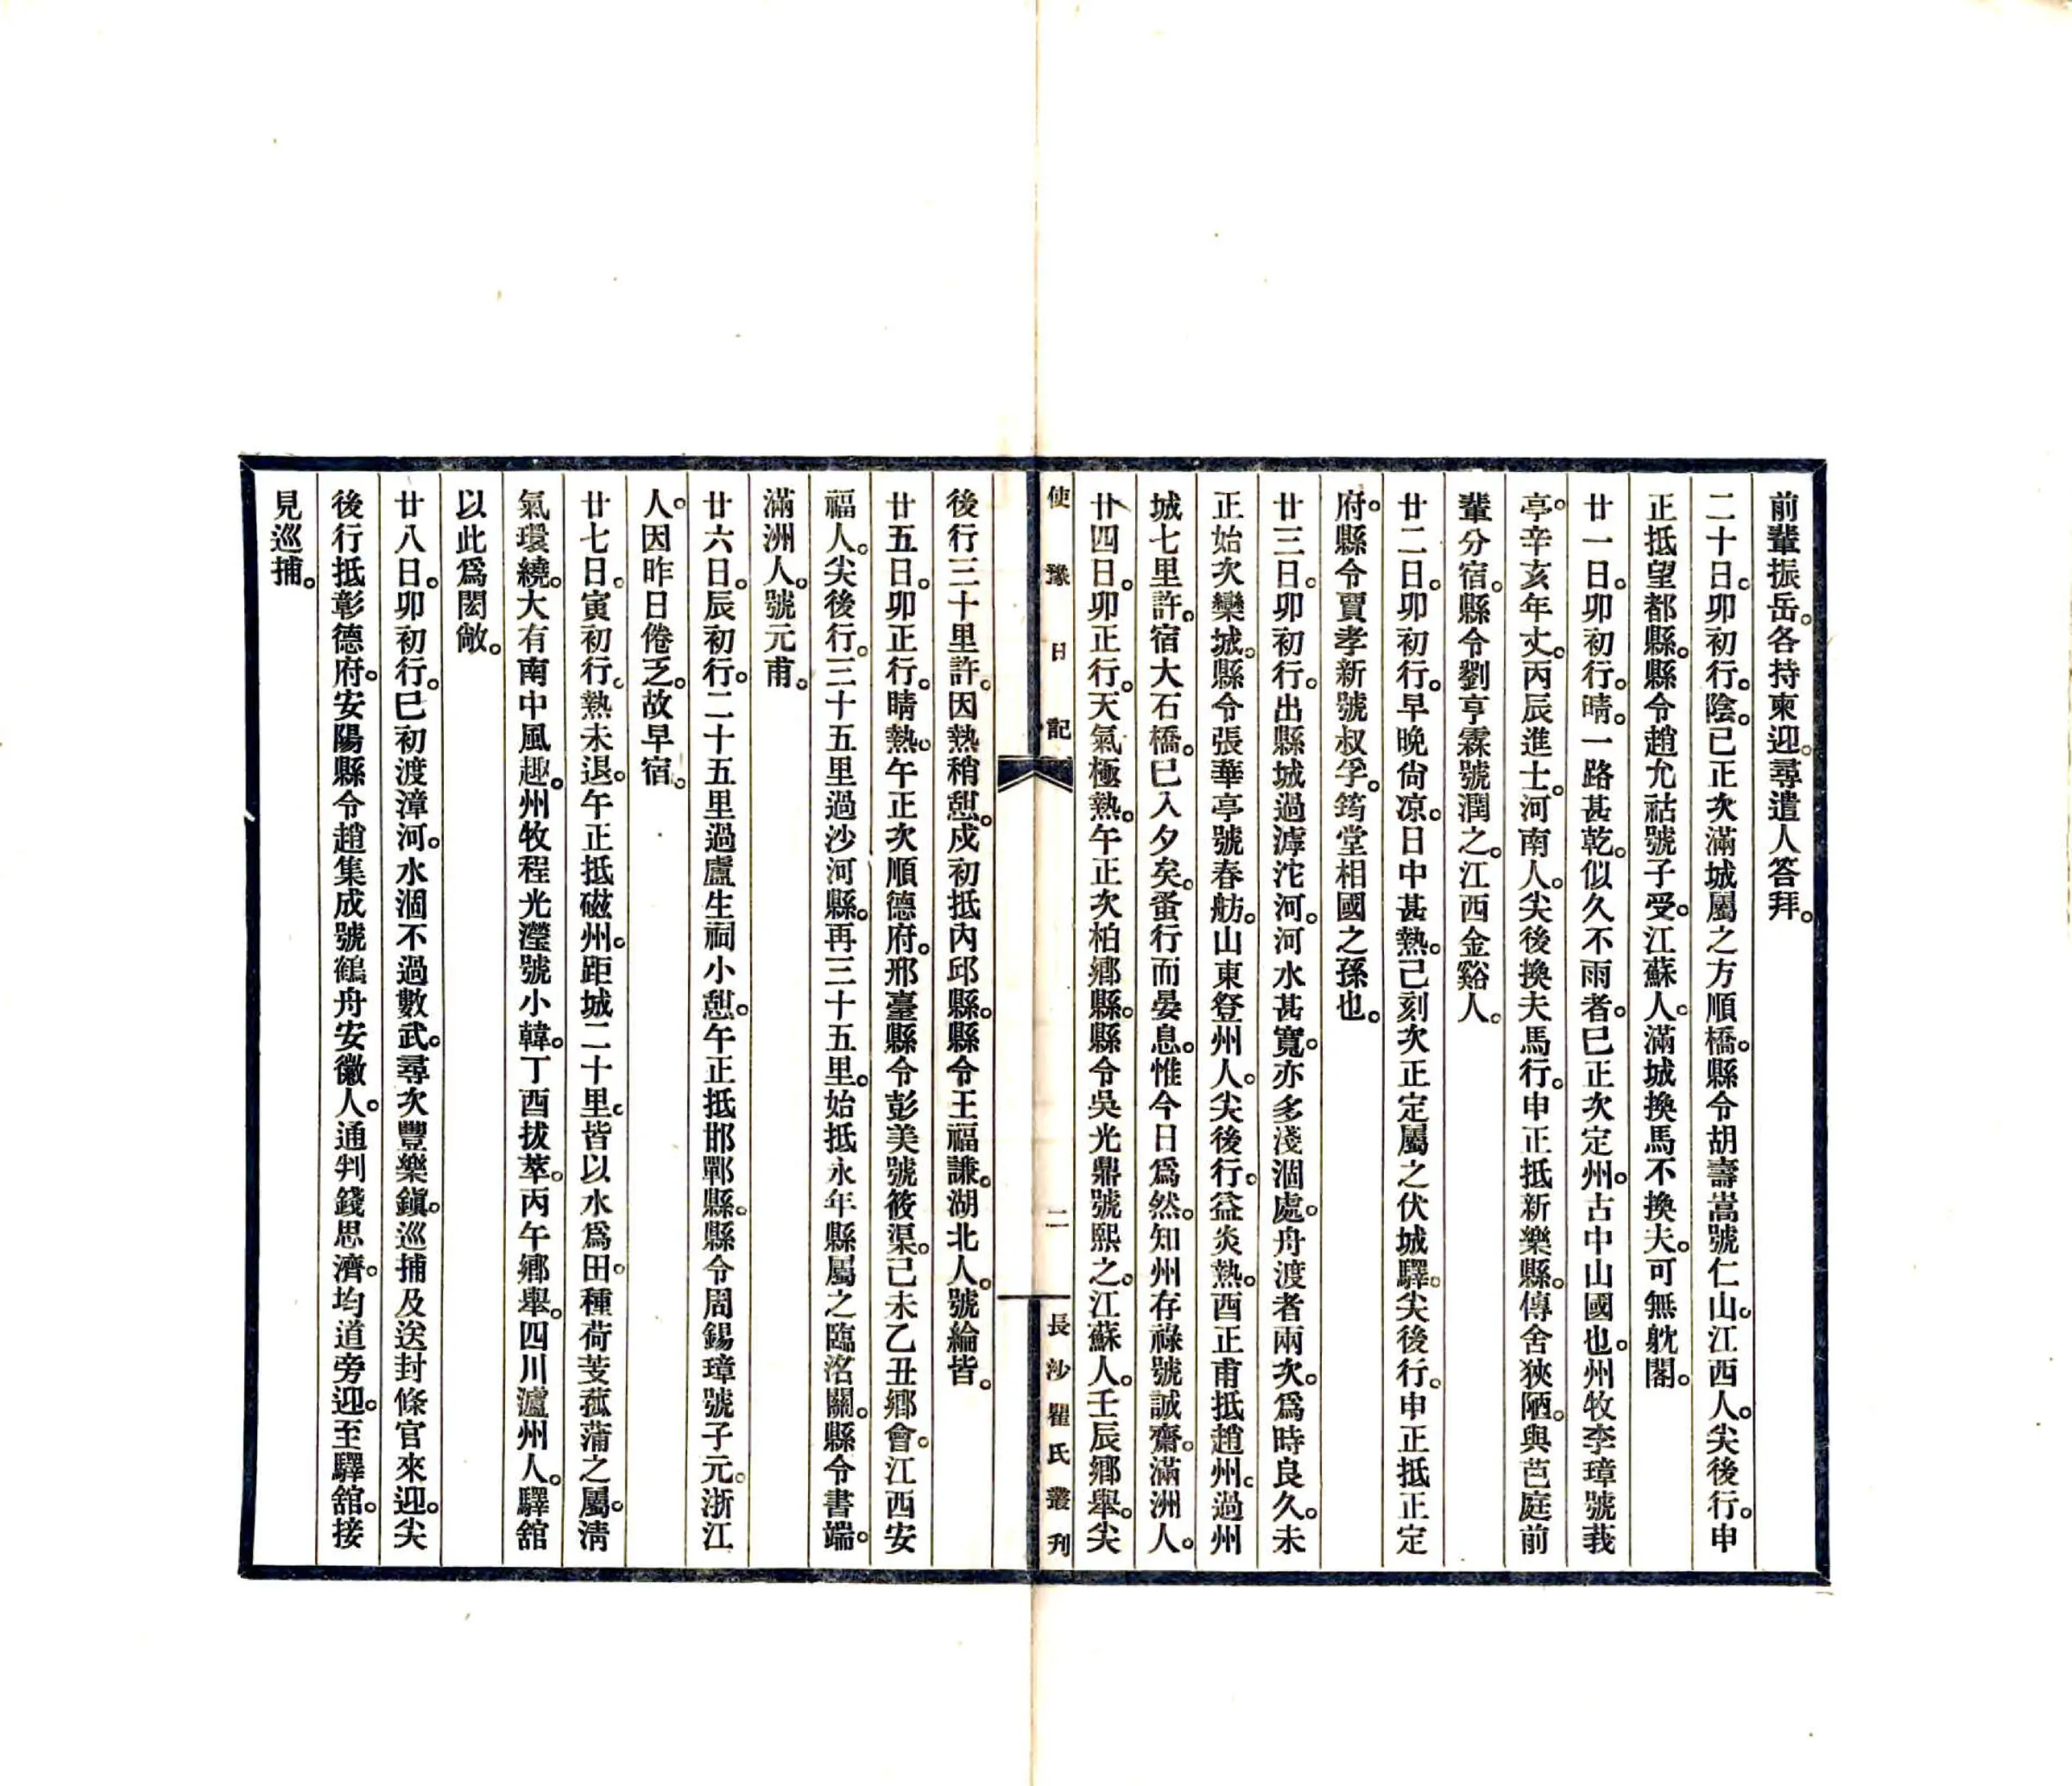 前輩振岳。各持柬迎。尋遣人答拜。
二十日。卯初行。陰。已正次滿城屬之方順橋。縣令胡壽嵩號仁山。江西人。尖後行。申
正抵望都縣。縣令趙允祜號子受。江蘇人。滿城換馬不換夫。可無躭閣。
廿一日。卯初行。晴。一路甚乾。似久不雨者。巳正次定州。古中山國也。州牧李璋號莪
亭。辛亥年丈。丙辰進士。河南人。尖後換夫馬行。申正抵新樂縣。傳舍狹陋。與芭庭前
輩分宿。縣令劉亨霖號潤之。江西金谿人。
廿二日。卯初行。早晚尙凉。日中甚熱。己刻次正定屬之伏城驛。尖後行。申正抵正定
府。縣令賈孝新號叔孚。筠堂相國之孫也。
廿三日。卯初行。出縣城過滹沱河。河水甚寬。亦多淺涸處。舟渡者兩次。爲時良久。未
正始次欒城。縣令張華亭號春舫。山東登州人。尖後行。益炎熱。酉正甫抵趙州。過州
城七里許。宿大石橋。巳入夕矣。蚤行而晏息。惟今日爲然。知州存祿號誠齋。滿洲人。
廿四日。卯正行。天氣極熱。午正次柏鄉縣。縣令吳光鼎號熙之。江蘇人。壬辰鄉舉。尖
使豫日記 二 長沙瞿氏叢刊
後行三十里許。因熱稍憩。戍初抵內邱縣。縣令王福謙。湖北人。號綸皆。
廿五日。卯正行。晴熱。午正次順德府。邢臺縣令彭美號筱渠。己未乙丑鄉會。江西安
福人。尖後行。三十五里過沙河縣。再三十五里。始抵永年縣屬之臨洺關。縣令書端。
滿洲人。號元甫。
廿六日。辰初行。二十五里過盧生祠小憩。午正抵邯鄲縣。縣令周錫璋號子元。浙江
人。因昨日倦乏。故早宿。
廿七日。寅初行。熱未退。午正抵磁州。距城二十里。皆以水爲田。種荷芰菰蒲之屬。淸
氣環繞。大有南中風趣。州牧程光瀅號小韓。丁酉拔萃。丙午鄉舉。四川瀘州人。驛舘
以此爲閎敞。
廿八日。卯初行。巳初渡漳河。水涸不過數武。尋次豐樂鎭。巡捕及送封條官來迎。尖
後行抵彰德府。安陽縣令趙集成號鶴舟安徽人。通判錢思濟。均道旁迎。至驛舘。接
見巡捕。